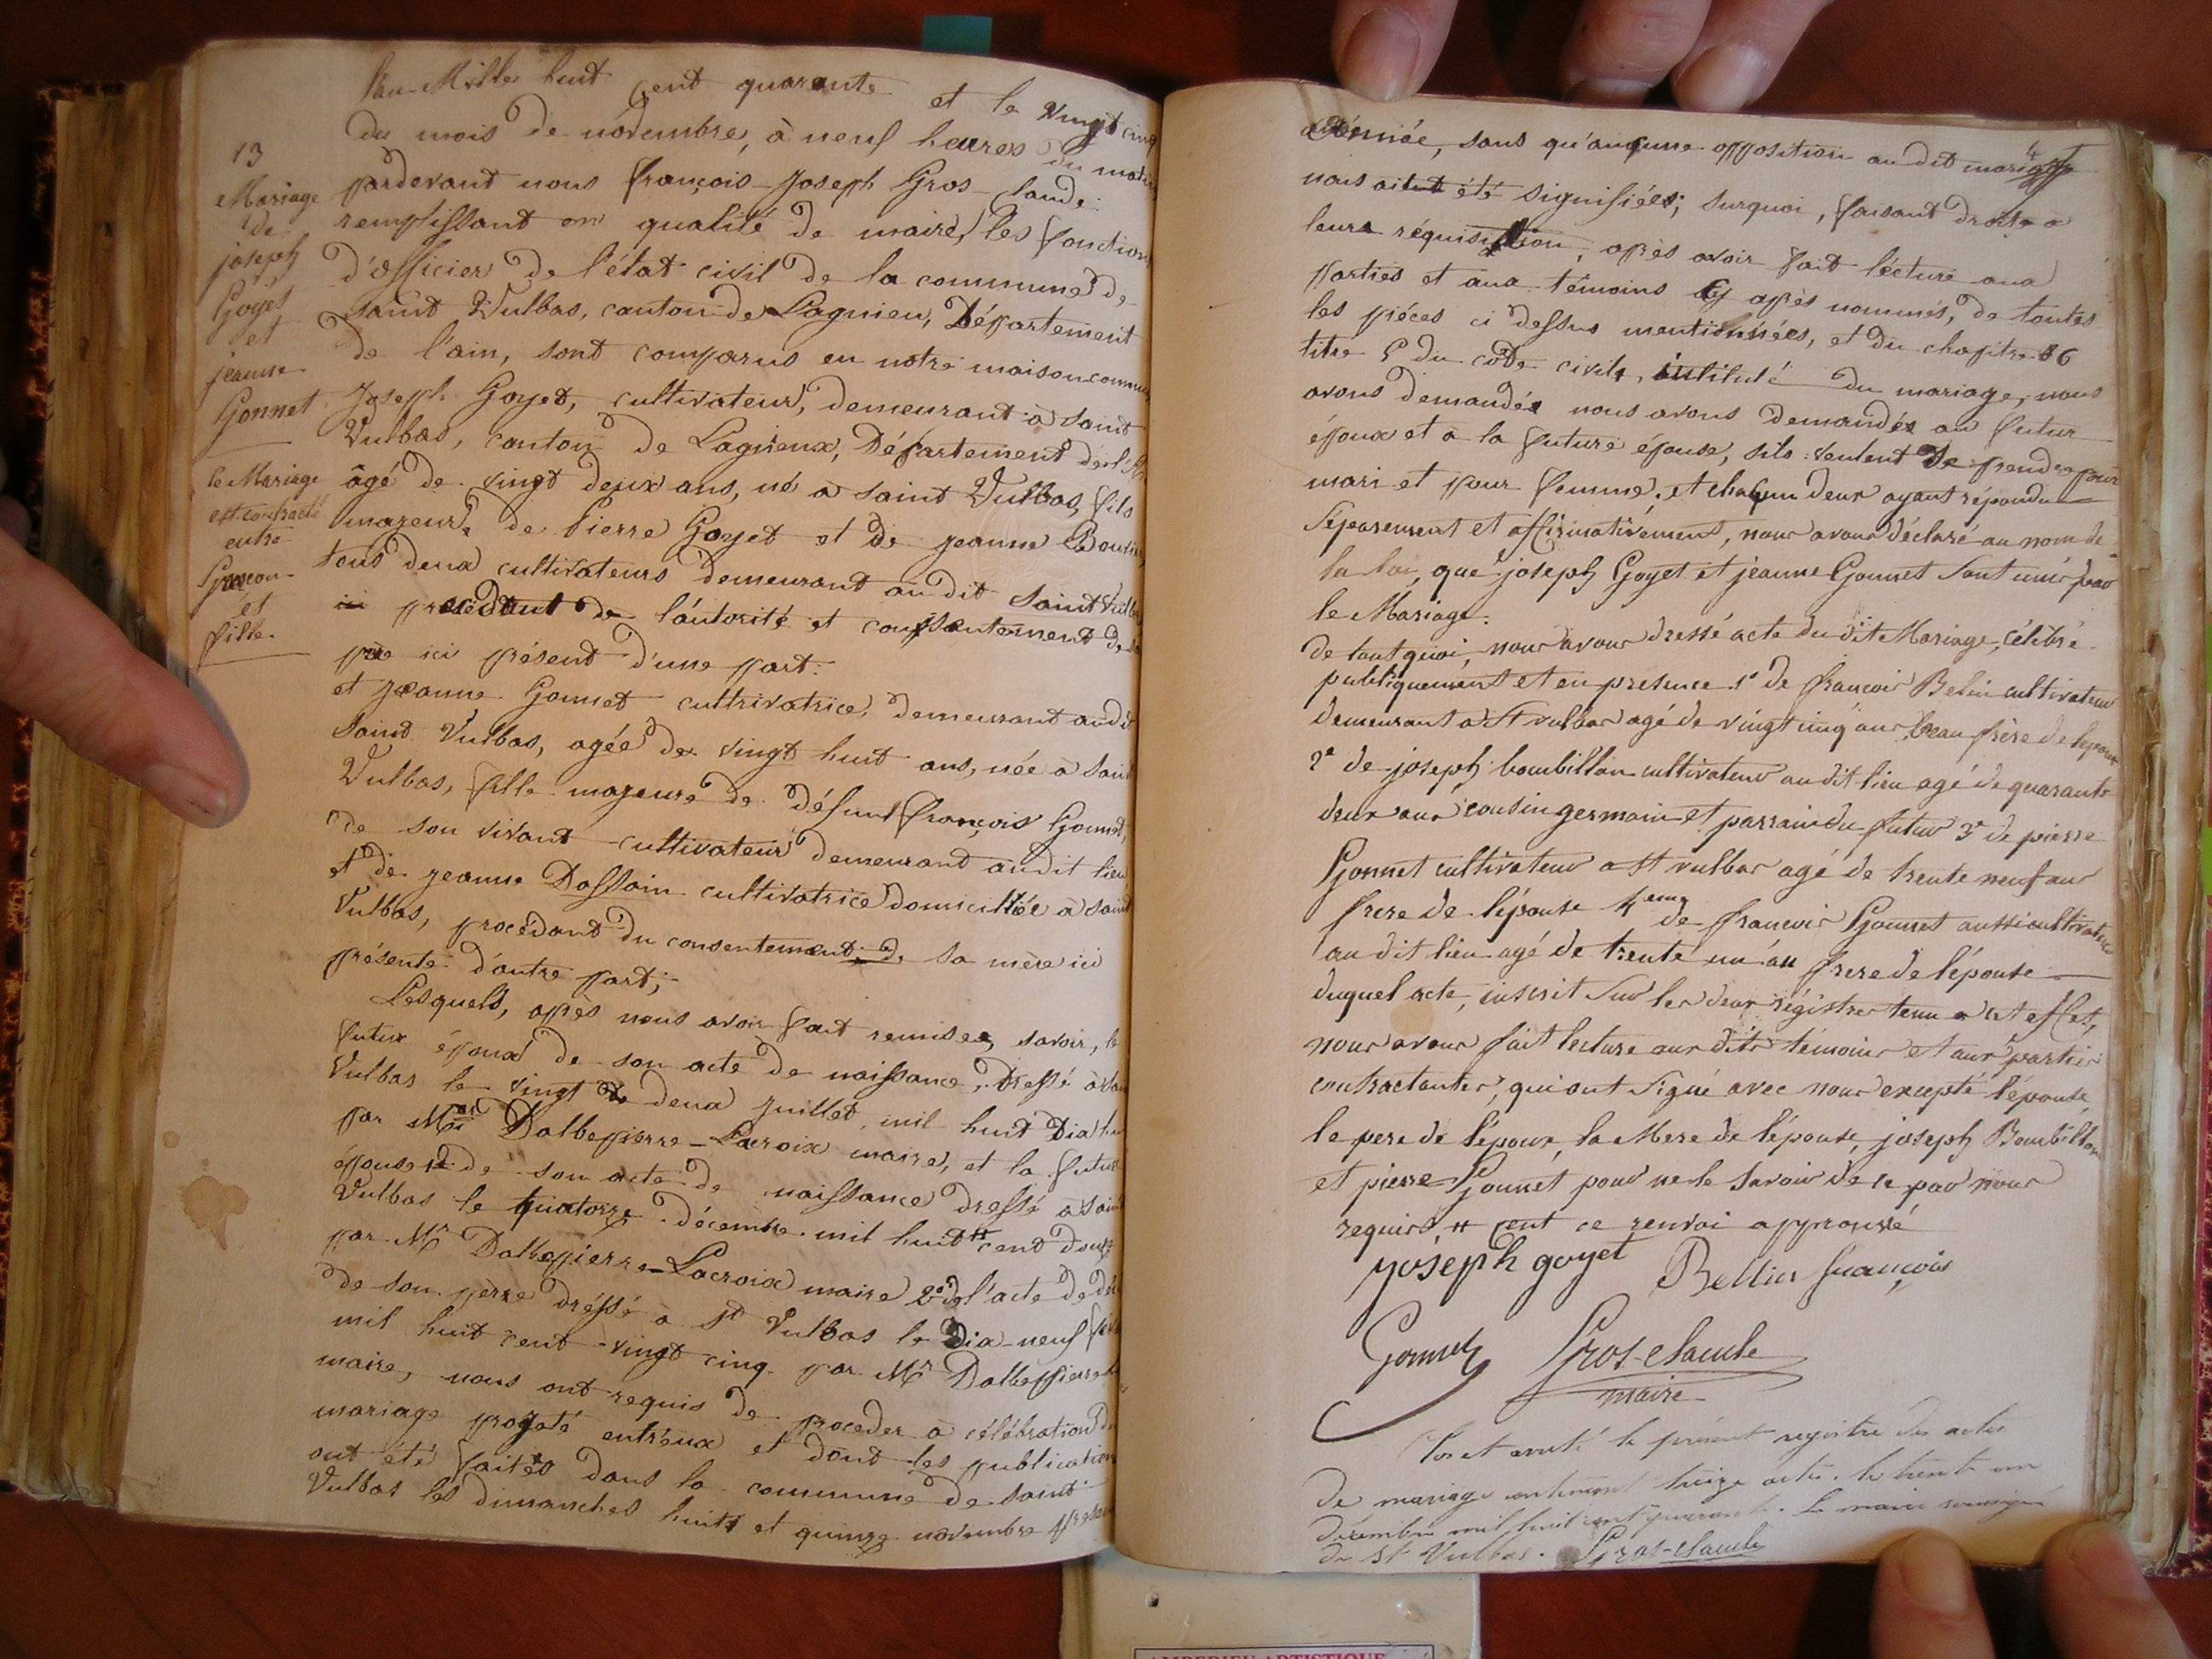 L'an Mille huit Cent quarante et le vingt cinq
du mois de novembre, à neuf heures du matin
pardevant nous françois-Joseph Gros-Claude
remplissant en qualité de maire, les fonction
d'officier de l'état civil de la commune de
Saint Vulbas, canton de Lagnieu, Département
de l'ain, sont comparus en notre maison commune
Joseph Goyet, cultivateur, demeurant à saint
Vulbas, canton de Lagnieux, Département de l'
âgé de vingt deux ans, né à saint Vulbas, fils
majeur de Pierre Goyet et de jeanne
tous deux cultivateurs demeurant au dit saint Vulbas
procédant de l'autorité et consentement de
père ici présent d'une part.
et jeanne Gonnet cultrivatrice, demeurant audit
saint Vulbas, agée de vingt huit ans, née à saint
Vulbas, fille majeure de défunt françois Gonnet,
de son vivant cultivateur demeurant audit lieu
et de jeanne Dassain cultivatrice domiciliée à saint
Vulbas, procédant du consentement de sa mère ici
présente d'autre part;
Lesquels, après nous avoir fait remise, savoir, le
futur époux de son acte de naissance, dressé à
Vulbas le vingt deux juillet, mil huit Dix
par Mr Dalbepierre-Lacroix maire, et la future
épouse de son acte de naissance dressé à saint
Vulbas le quatorze décembre mil huit # cent douze
par Mr Dalbepierre-Lacroix maire 2° de l'acte de
de son perre dréssé a St Vulbas le Dix-neuf
mil huit cent vingt cinq par Mr Dalbepierre
maire, nous ont requis de proceder à célébration du
mariage projeté entr'eux et dont les publication
ont été faites dans la commune de saint
Vulbas les dimanches huit et quinze novembre
13
Mariage
de
joseph
Goyet
et
jeanne
Gonnet
le Mariage
est contracté
entre
Garcon
et
fille
sans qu'aucune opposition au dit mariage
nous ait été signifiée; surquoi, faisant droit a
leurs réquisition, après avoir fait lécture aux
parties et aux témoins après nommés, de toutes
les pièces ci dessus mentionnées, et du chapitre 6
titre 5 du code civil, intitulé du mariage, nous
avons demandés nous avons demandés au futur
époux et a la future épouse, sils veulent se prendre pour
mari et pour femme, et chacun deux ayant répondu
séparement et affirmativement, nous avons déclaré au nom de
la loi, que joseph Goyet et jeanne Gonnet sont unis par
le Mariage.
de tout quoi, nous avons dressé acte du dit Mariage, célébré
publiquement et en présence 1° de françois Belin cultivateur
demeurant a St vulbas agé de vingt cinq ans, beau frère de l'epoux
2° de joseph bombillon cultivateur au dit lieu agé de quarante
deux ans cousin germain et parrain du futur 3° de pierre
Gonnet cultivateur a St vulbas agé de trente neuf ans
frere de l'épouse 4eme de françois Gonnet aussi cultivateur
au dit lieu agé de trente un an frere de l'épouse
duquel acte, inscrit sur les deux régistres tenu a cet effet,
nous avons fait lecture aux dits témoins et aux parties
contractantes, qui ont signé avec nous excepté l'épouse,
le pere de l'époux, la Mere de l'épouse, joseph Bombillon
et pierre Gonnet pour ne le savoir de ce par nous
requis # cent ce renvoi approuvé
joseph goyet Bellin francois
Gonnet Gros-claude
maire
Clos et arreté le présent registre des actes
de mariage contenant treize actes. le trente un
décembre mil huit cent quarante. Le maire soussigné
de St Vulbas. Gros-claude
AMBERIEU ARTISTIQUE